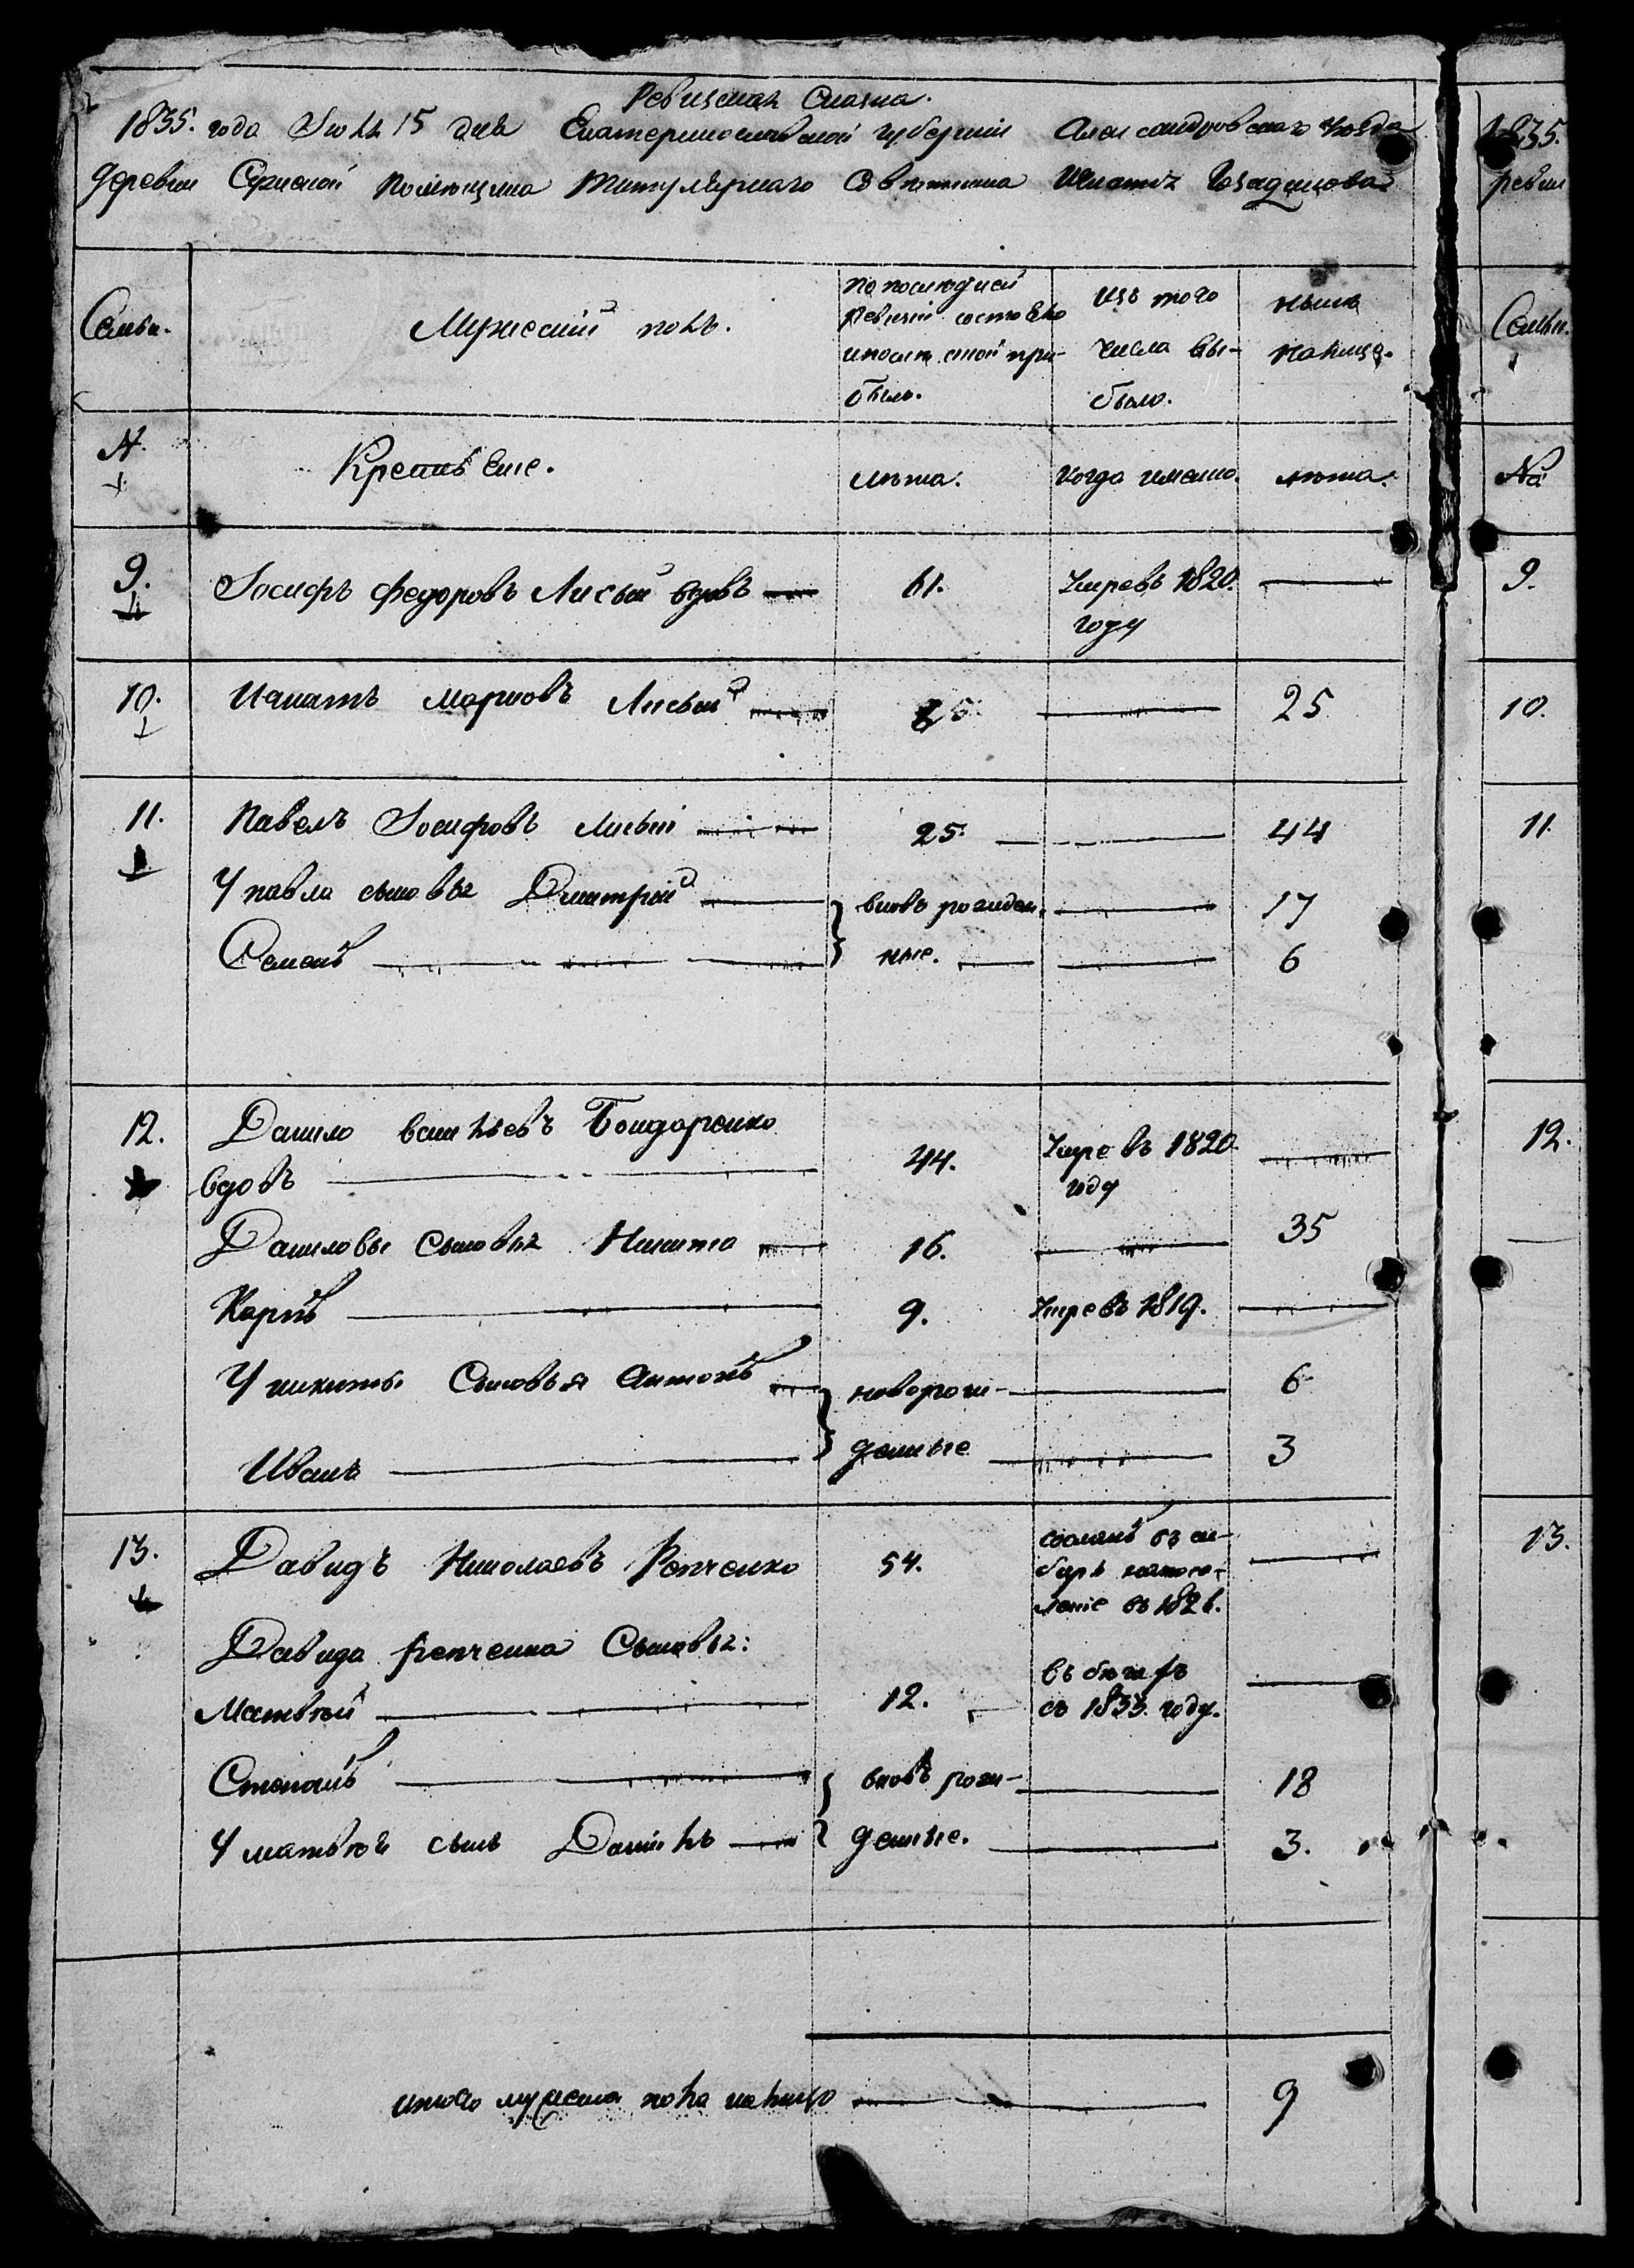 Ревизская Сказка.
1835. года Июля 15 дня Екатеринославской губернии Александровскаго уѣзда
деревни помѣщика Титулярнаго Совѣтника
Семьи.
Мужеский полъ.
по последней ревизии состояло и послѣ оной прибыло.
Изъ того числа выбыло.
нынѣ на лицо.
№
Крестьяне.
лѣта.
когда именно.
лѣта.
9. Іосифъ Федоровъ Лисый вдовъ 61. Умре въ 1820. году
10. Игнатъ Марковъ Лисый 25
11. Павелъ Іосифовъ Лисый 25. 44
У павла сыновья Дмитрий вновь рожден- 17
Семенъ ные. 6
12. Данило васильевъ Бондаренко
вдовъ 44. Умре въ 1820 году
Даниловы сыновья Никита 16. 35
Карпъ 9. Умре въ 1819.
У никиты Сыновья Антонъ новорож- 6
Иванъ денные 3
13. Давидъ Николаевъ Репченко 54. сосланъ въ сибирь на поселение въ
Давида Репченка Сыновья:
Матвѣй 12. въ бегахъ съ 1833. году.
Степанъ вновь рож- 18
У матвѣя сынъ Данилъ денные. 3.
итого мужеска пола на лицо 9
1835.
ревиз
Семьи.
№
9.
10.
11.
12.
13.